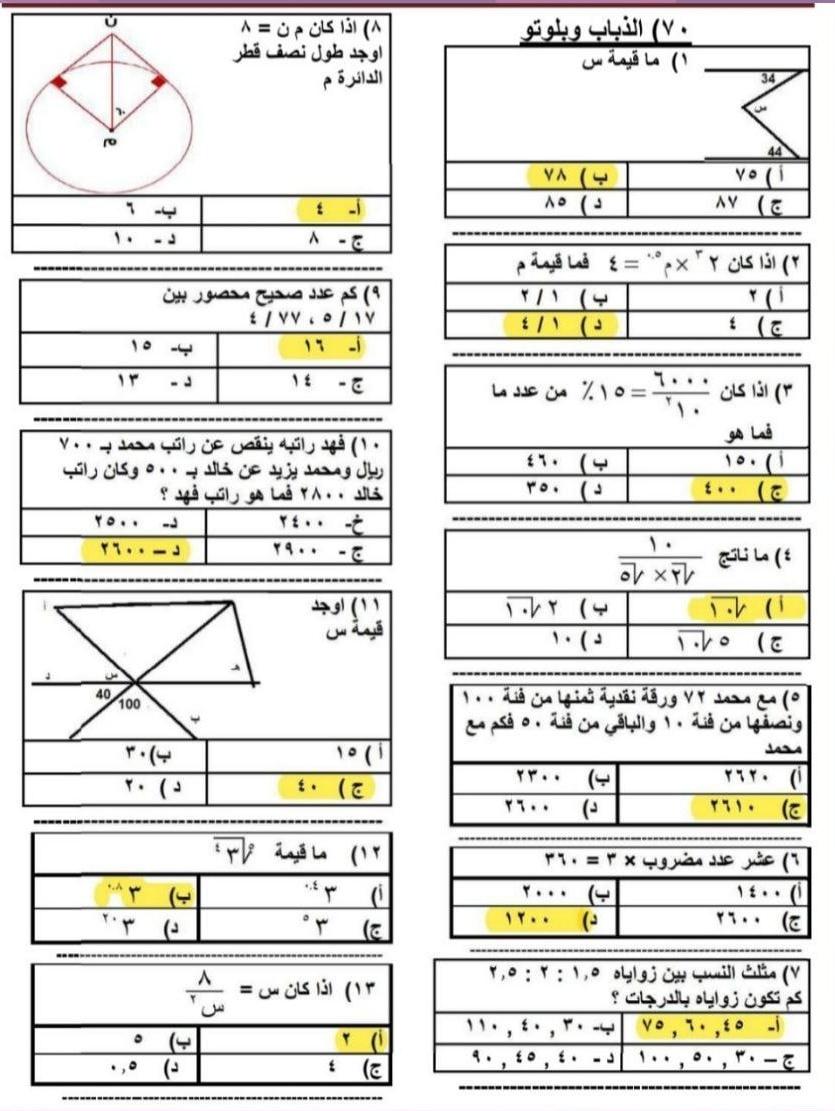 ٧٠) الذباب وبلوتو
١) ما قيمة س
34
س
44
أ) ٧٥
ب) ٧٨
ج) ٨٧
د) ٨٥
٢) اذا كان ٢ ٣ × م ٠.٥ = ٤ فما قيمة م
أ) ٢
ب) ١ / ٢
ج) ٤
د) ١ / ٤
٣) اذا كان ٦٠٠٠ / ١٠ ٢ = ١٥٪ من عدد ما
فما هو
أ) ١٥٠
ب) ٤٦٠
ج) ٤٠٠
د) ٣٥٠
٤) ما ناتج ١٠ / √٢ × √٥
أ) √١٠
ب) ٢√١٠
ج) ٥√١٠
د) ١٠
٥) مع محمد ٧٢ ورقة نقدية ثمنها من فئة ١٠٠
ونصفها من فئة ١٠ والباقي من فئة ٥٠ فكم مع
محمد
أ) ٢٦٢٠
ب) ٢٣٠٠
ج) ٢٦١٠
د) ٢٦٠٠
٦) عشر عدد مضروب × ٣ = ٣٦٠
أ) ١٤٠٠
ب) ٢٠٠٠
ج) ٢٦٠٠
د) ١٢٠٠
٧) مثلث النسب بين زواياه ١,٥ : ٢ : ٢,٥
كم تكون زواياه بالدرجات ؟
أ- ٤٥ , ٦٠ , ٧٥
ب- ٣٠ , ٤٠ , ١١٠
ج – ٣٠ , ٥٠ , ١٠٠
د - ٤٠ , ٤٥ , ٩٠
٨) اذا كان م ن = ٨
اوجد طول نصف قطر
الدائرة م
ن
٦٠
م
أ- ٤
ب- ٦
ج - ٨
د - ١٠
٩) كم عدد صحيح محصور بين
١٧ / ٥ ، ٧٧ / ٤
أ- ١٦
ب- ١٥
ج - ١٤
د - ١٣
١٠) فهد راتبه ينقص عن راتب محمد بـ ٧٠٠
ريال ومحمد يزيد عن خالد بـ ٥٠٠ وكان راتب
خالد ٢٨٠٠ فما هو راتب فهد ؟
خ- ٢٤٠٠
د- ٢٥٠٠
ج - ٢٩٠٠
د – ٢٦٠٠
١١) اوجد
قيمة س
أ
ج
د
س
40
100
ب
أ) ١٥
ب) ٣٠
ج) ٤٠
د) ٢٠
١٢) ما قيمة ٥√٣ ٤
أ) ٣ ٠.٤
ب) ٣ ٠.٨
ج) ٣ ٥
د) ٣ ٢٠
١٣) اذا كان س = ٨ / س ٢
أ) ٢
ب) ٥
ج) ٤
د) ٠,٥